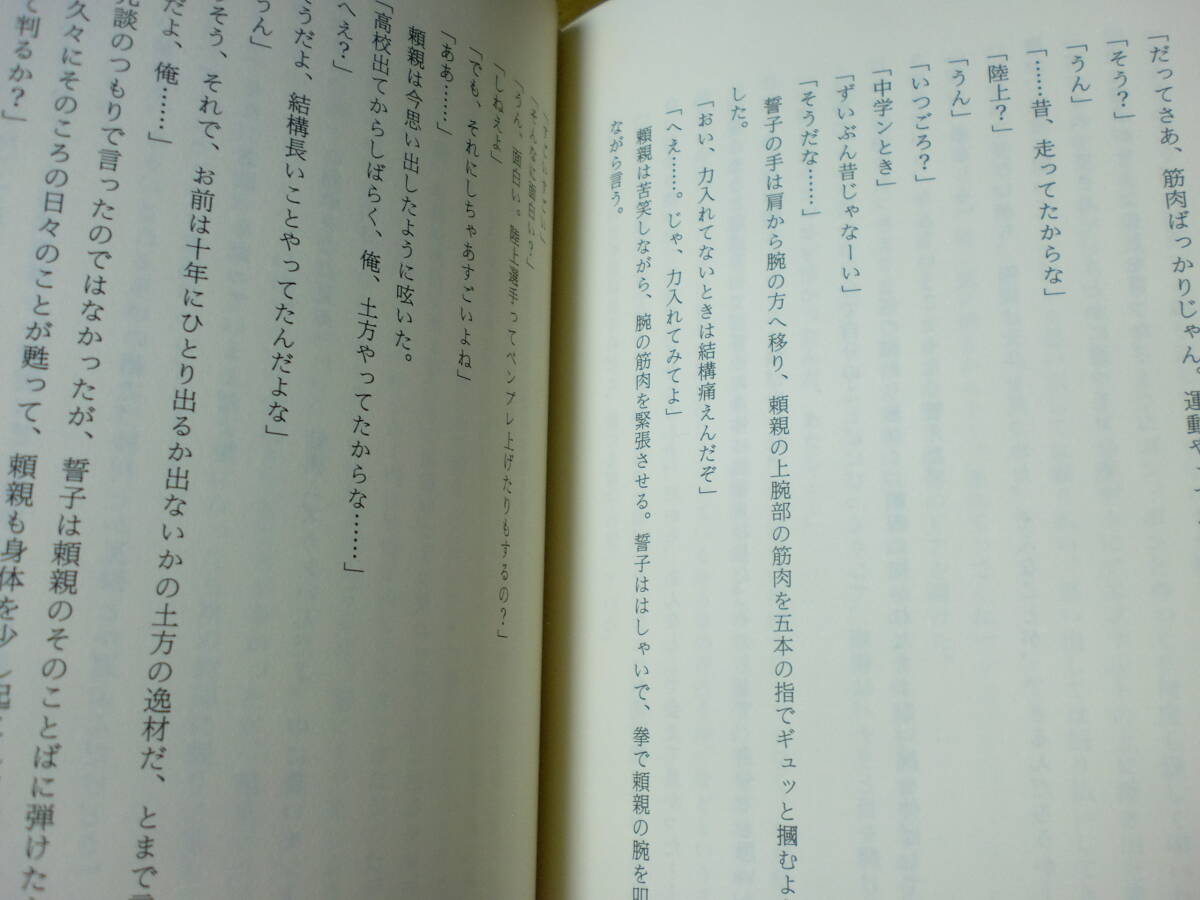 「だってさあ、筋肉ばっかりじゃん。運動や
「そう？」
「うん」
「……昔、走ってたからな」
「陸上？」
「うん」
「いつごろ？」
「中学ンとき」
「ずいぶん昔じゃなーい」
「そうだな……」
誓子の手は肩から腕の方へ移り、頼親の上腕部の筋肉を五本の指でギュッと摑むよ
した。
「おい、力入れてないときは結構痛えんだぞ」
「へえ……。じゃ、力入れてみてよ」
頼親は苦笑しながら、腕の筋肉を緊張させる。誓子ははしゃいで、拳で頼親の腕を叩
ながら言う。
「そんなに面白い？」
「うん、面白い。陸上選手ってベンプレ上げたりもするの？」
「しねえよ」
「でも、それにしちゃあすごいよね」
「ああ……」
頼親は今思い出したように呟いた。
「高校出てからしばらく、俺、土方やってたからな……」
へえ？」
うだよ、結構長いことやってたんだよな」
うん」
そう、それで、お前は十年にひとり出るか出ないかの土方の逸材だ、とまで
だよ、俺……」
談のつもりで言ったのではなかったが、誓子は頼親のそのことばに弾けた
久々にそのころの日々のことが甦って、頼親も身体を少し起
て判るか？」